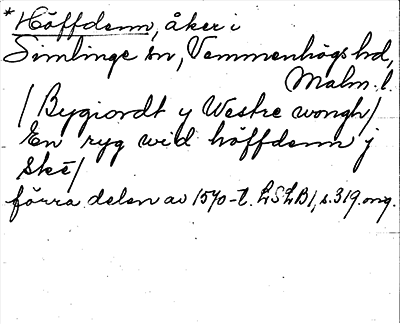 * Höffdenn, åker i
Simlinge sn, Vemmenhögs hd,
Malm. l.
/ Bygiordt y Westre wongh /
En ryg wid höffdenn j
Skē /
förra delen av 1570-t. LSLB 1, s. 319. omg.